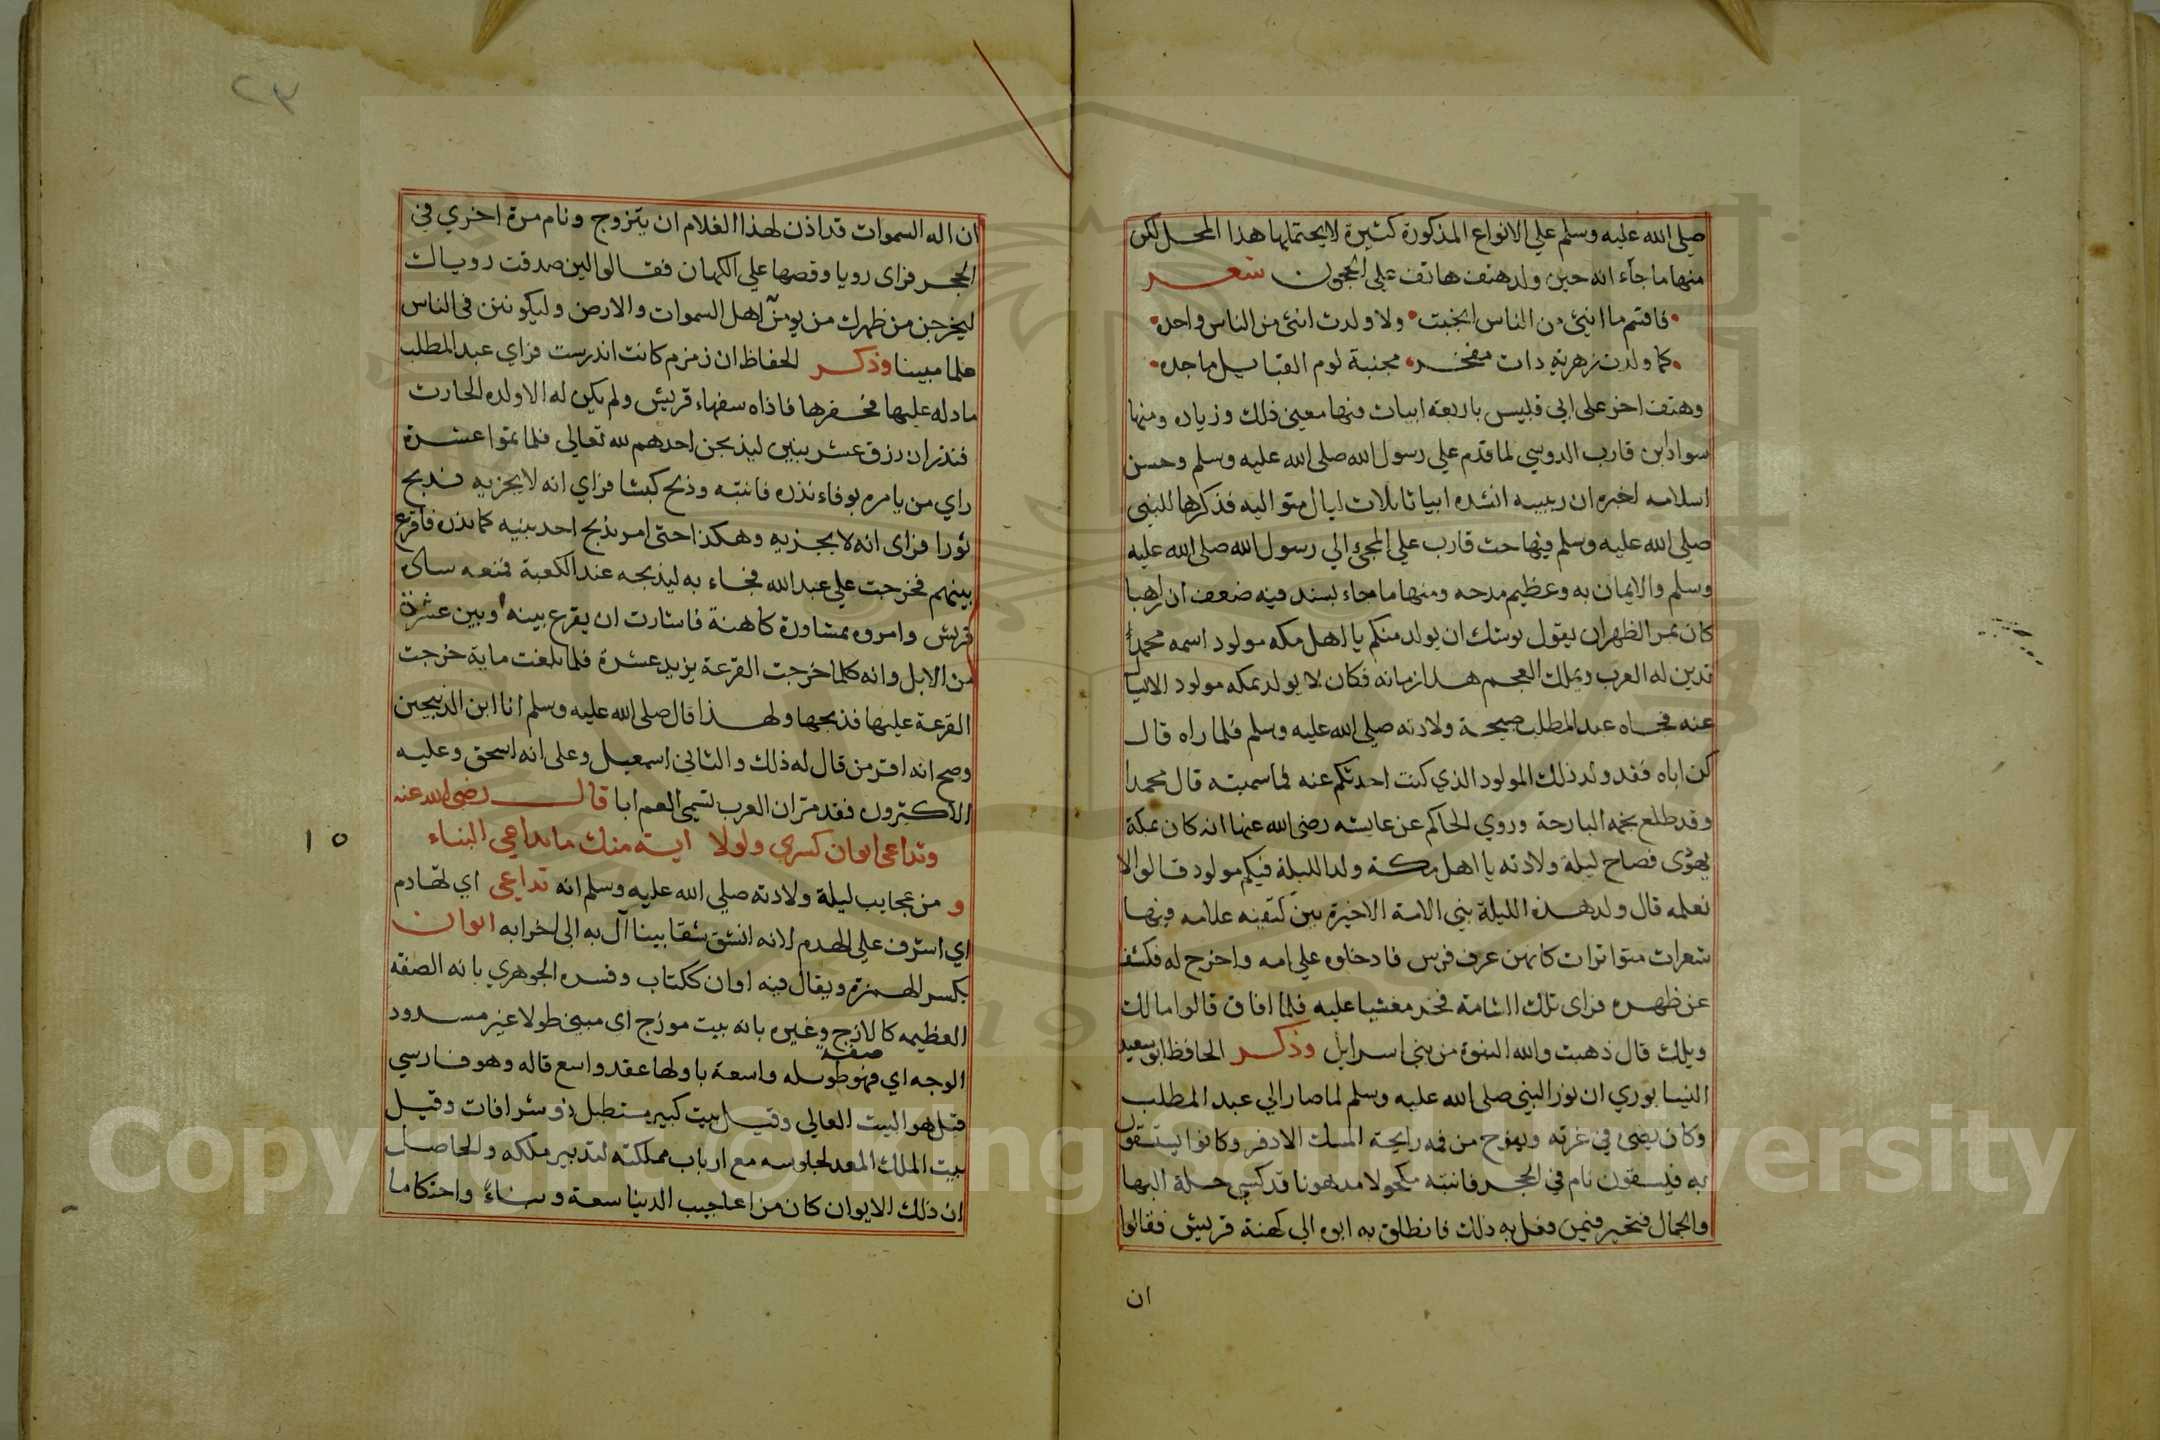 صلي الله عليه وسلم علي الانواع المذكورة كثيرة لايحتملها هذا المحل لكن
منها ما جآء انه حين ولد هتف هاتف علي الحجون شعر
فاقسم ما انثي من الناس انجبت ولا ولدت انثي من الناس واحده
كما ولدت زهرية ذات مفخر مجنبة لوم القبايل ماجده
وهتف اخر علي ابي قبيس باربعة ابيات منها معني ذلك وزياده ومنها
سواد ابن قارب الدوسي لما قدم علي رسول الله صلي الله عليه وسلم وحسن
اسلامه اخبره ان رييه انشده ابياتا ثلاث ليال متواليه فذكرها للنبي
صلي الله عليه وسلم فيها حث قارب علي المجئ الي رسول الله صلي الله عليه
وسلم والايمان به وعظيم مدحه ومنها ما جاء بسند فيه ضعف ان راهبا
كان بمر الظهران يقول يوشك ان يولد منكم يا اهل مكه مولود اسمه محمد
تدين له العرب ويملك العجم هذا زمانه فكان لا يولد بمكه مولود الا يسال
عنه فجاه عبد المطلب صبيحة ولادته صلي الله عليه وسلم فلما راه قال
كن اباه فقد ولد ذلك المولود الذي كنت احدثكم عنه فما سميته قال محمدا
وقد طلع نجمه البارحة وروي الحاكم عن عايشه رضي الله عنها انه كان بمكة
يهودي فصاح ليلة ولادته يا اهل مكة ولد الليلة فيكم مولود قالوا لا
نعلمه قال ولد هذه الليلة نبي الامة الاخيرة بين كتفيه علامه فيها
شعرات متواترات كانهن عرف فرس فادخلوه علي امه واخرج له فكشف
عن ظهره فراي تلك الشامة فخر مغشيا عليه فلما افاق قالوا مالك
ويلك قال ذهبت والله النبوة من بني اسرايل وذكر الحافظ ابو سعيد
النيسابوري ان نور النبي صلي الله عليه وسلم لما صار الي عبد المطلب
وكان يضئ في غرته ويفوح من فمه رايحة المسك الاذفر وكانوا يستسقون
به فيسقون نام في الحجر فانتبه مكحولا مدهونا قد كسي حلة البها
والجمال فتحير فيمن فعل به ذلك فانطلق به ابوه الي كهنة قريش فقالوا
ان
٢٣
ان اله السموات قد اذن لهذا الغلام ان يتزوج ونام مرة اخري في
الحجر فراي رويا وقصها علي الكهان فقالوا لين صدقت روياك
ليخرجن من ظهرك من يومن اهل السموات والارض وليكونن في الناس
علما مبينا وذكر الحفاظ ان زمزم كانت اندرست فراي عبد المطلب
ما دله عليها فحفرها فاذاه سفهاء قريش ولم يكن له الا ولده الحارث
فنذر ان رزق عشر بنين ليذبحن احدهم لله تعالي فلما تموا عشرة
راي من يامره بوفاء نذره فانتبه وذبح كبشا فراي انه لا يجزيه فذبح
ثورا فراي انه لا يجزيه وهكذا حتي امر بذبح احد بنيه كما نذر فاقرع
بينهم فخرجت علي عبد الله فجاء به ليذبحه عند الكعبة فمنعه ساير
قريش وامروه بمشاورة كاهنة فاشارت ان يقرع بينه وبين عشرة
من الابل وانه كلما خرجت القرعة يزيد عشرة فلما بلغت ماية خرجت
القرعة عليها فذبحها ولهذا قال صلي الله عليه وسلم انا ابن الذبيحين
وصح انه اقر من قال له ذلك والثاني اسمعيل وعلي انه اسحق وعليه
الاكثرون فقد مر ان العرب تسمي العم ابا قال رضي الله عنه
وتداعي ايوان كسري ولولا اية منك ما تداعي البناء
١٥
و من عجايب ليلة ولادته صلي الله عليه وسلم انه تداعي اي تهادم
اي اشرف علي الهدم لانه انشق شقا بينا آل به الي اخرابه ايوان
بكسر الهمزة ويقال فيه اوان ككتاب وفسره الجوهري بانه الصفه
العظيمه كالازج وغيره بانه بيت موزج اي مبني طولا غير مسدود
صفة
الوجه اي فهو طويله واسعة باولها عقد واسع قاله وهو فارسي
قيل هو البيت العالي وقيل بيت كبير مستطيل ذو شرافات وقيل
بيت الملك المعد لجلوسه مع ارباب مملكته لتدبير ملكه والحاصل
ان ذلك الايوان كان من اعاجيب الدنيا سعة وبناءً واحكاما
Copyright © King Saud University